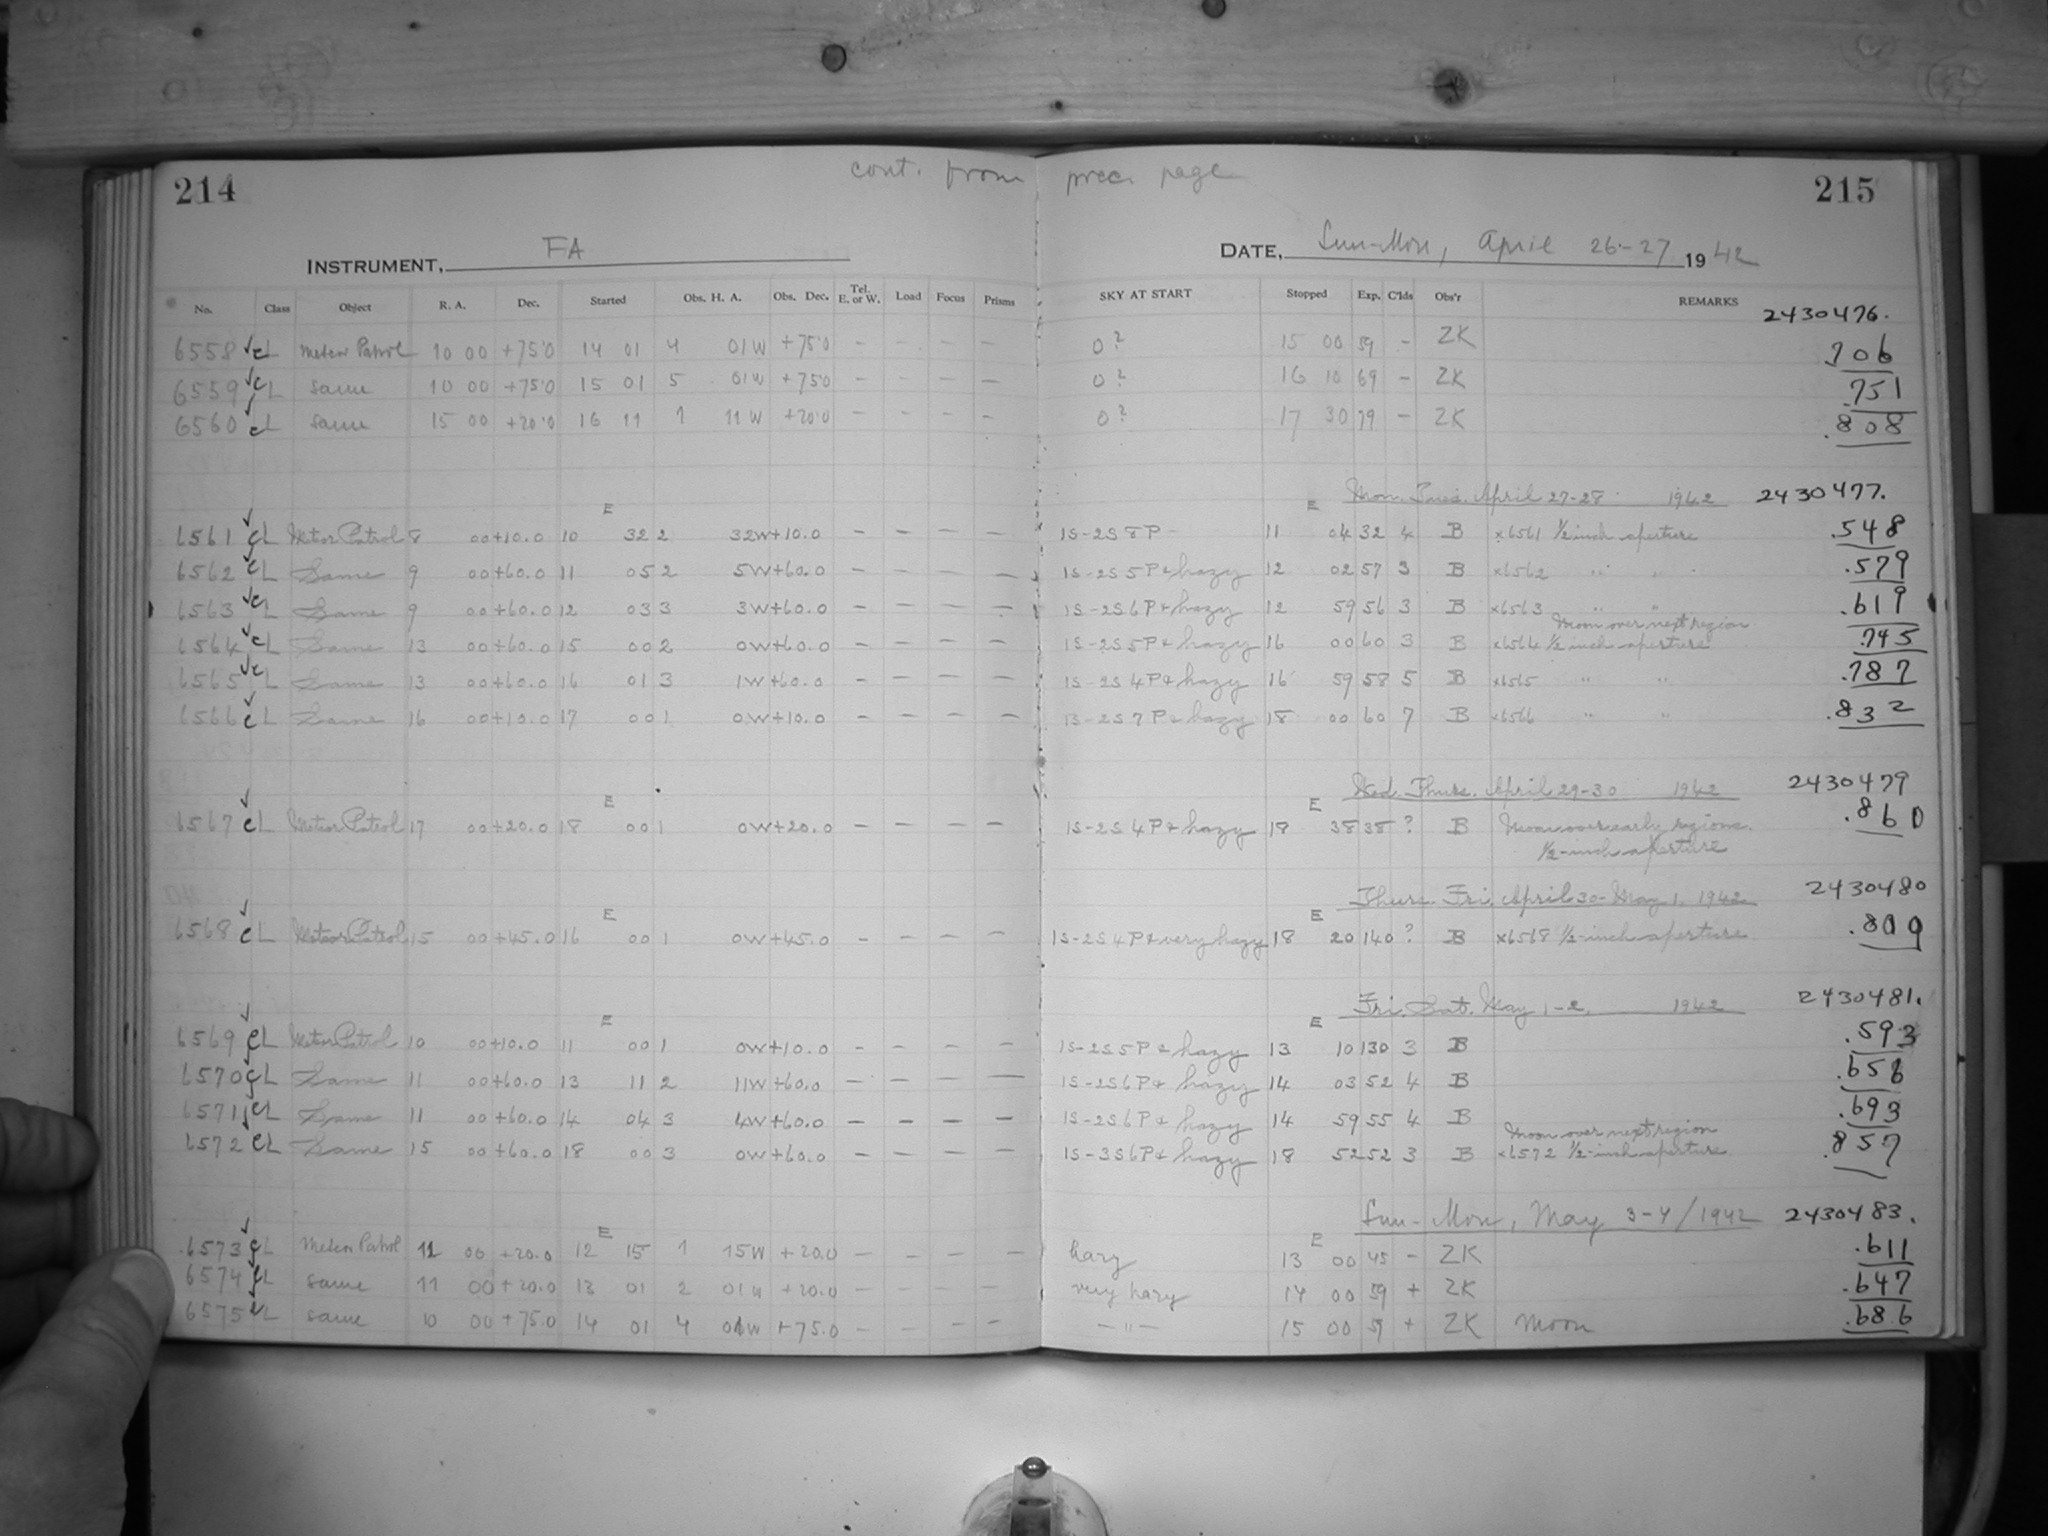 214 cont. from prec. page 215
INSTRUMENT, FA DATE, Sun-Mon, April 26-27 1942
No. Class Object R. A. Dec. Started Obs. H. A. Obs. Dec. Tel. E. or W. Load Focus Prisms SKY AT START Stopped Exp. C'lds Obs'r REMARKS
2430476.
6558 cL Meteor Patrol 10 00 +75.0 14 01 4 01W +75.0 - - - - 0? 15 00 59 - ZK .706
6559 cL same 10 00 +75.0 15 01 5 01W +75.0 - - - - 0? 16 10 69 - ZK .751
6560 cL same 15 00 +20.0 16 11 1 11W +20.0 - - - - 0? 17 30 79 - ZK .808
E E Mon. Tues. April 27-28 1942 2430477.
6561 cL Meteor Patrol 8 00 +10.0 10 32 2 32W +10.0 - - - - 1S-2S 8P - 11 04 32 4 B x6561 1/2 inch aperture .548
6562 cL Same 9 00 +60.0 11 05 2 5W +60.0 - - - - 1S-2S 5P & hazy 12 02 57 3 B x6562 " " .579
6563 cL Same 9 00 +60.0 12 03 3 3W +60.0 - - - - 1S-2S 6P & hazy 12 59 56 3 B x6563 " " .619
Moon over next region
6564 cL Same 13 00 +60.0 15 00 2 0W +60.0 - - - - 1S-2S 5P & hazy 16 00 60 3 B x6564 1/2 inch aperture .745
6565 cL Same 13 00 +60.0 16 01 3 1W +60.0 - - - - 1S-2S 4P & hazy 16 59 58 5 B x6565 " " .787
6566 cL Same 16 00 +10.0 17 00 1 0W +10.0 - - - - 1S-2S 7P & hazy 18 00 60 7 B x6566 " " .832
E E Wed. Thurs. April 29-30 1942 2430479
6567 cL Meteor Patrol 17 00 +20.0 18 00 1 0W +20.0 - - - - 1S-2S 4P & hazy 18 38 38 ? B Moon over early regions. .860
1/2-inch aperture
E E Thurs. Fri. April 30-May 1, 1942 2430480
6568 cL Meteor Patrol 15 00 +45.0 16 00 1 0W +45.0 - - - - 1S-2S 4P & very hazy 18 20 140 ? B x6568 1/2-inch aperture .809
E E Fri. Sat. May 1-2, 1942 2430481.
6569 cL Meteor Patrol 10 00 +10.0 11 00 1 0W +10.0 - - - - 1S-2S 5P & hazy 13 10 130 3 B .593
6570 cL Same 11 00 +60.0 13 11 2 11W +60.0 - - - - 1S-2S 6P & hazy 14 03 52 4 B .656
6571 cL Same 11 00 +60.0 14 04 3 4W +60.0 - - - - 1S-2S 6P & hazy 14 59 55 4 B .693
Moon over next region
6572 cL Same 15 00 +60.0 18 00 3 0W +60.0 - - - - 1S-3S 6P & hazy 18 52 52 3 B x6572 1/2-inch aperture .857
E E Sun-Mon, May 3-4/1942 2430483.
6573 cL Meteor Patrol 11 00 +20.0 12 15 1 15W +20.0 - - - - hazy 13 00 45 - ZK .611
6574 cL same 11 00 +20.0 13 01 2 01W +20.0 - - - - very hazy 14 00 59 + ZK .647
6575 cL same 10 00 +75.0 14 01 4 01W +75.0 - - - - - " - 15 00 59 + ZK Moon .686